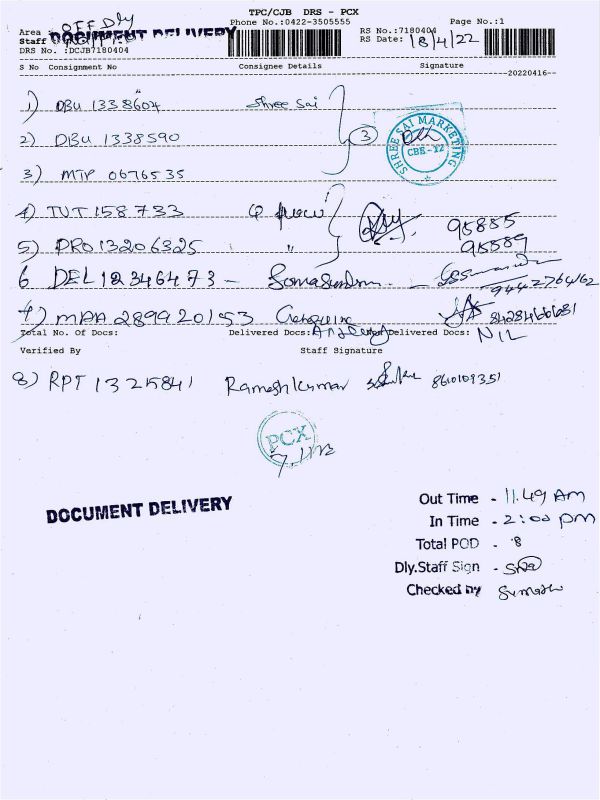 TPC/CJB DRS - PCX
OFF Dly
Phone No.:0422-3505555
Page No.:1
Area
DOCUMENT DELIVERY
RS No.:7180404
Staff
RS Date: 18/4/22
DRS No. :DCJB7180404
S No Consignment No Consignee Details Signature
20220416
1) DBU 1338604 Shree Sai
2) DBU 1338590 3
SHREE SAI MARKETING
CBE-12
3) MTP 0676535
4) TUT 158733
95885
5) PRO 13206325 "
95589
6 DEL 12346473 - Somasundram -
9442764162
7) MAA 289920153
Total No. Of Docs: Delivered Docs: Delivered Docs: NIL
Verified By Staff Signature
8) RPT 1325841 Rameshkumar 8610109351
PCX
DOCUMENT DELIVERY
Out Time - 11.49 AM
In Time - 2:00 pm
Total POD - 8
Dly.Staff Sign -
Checked by